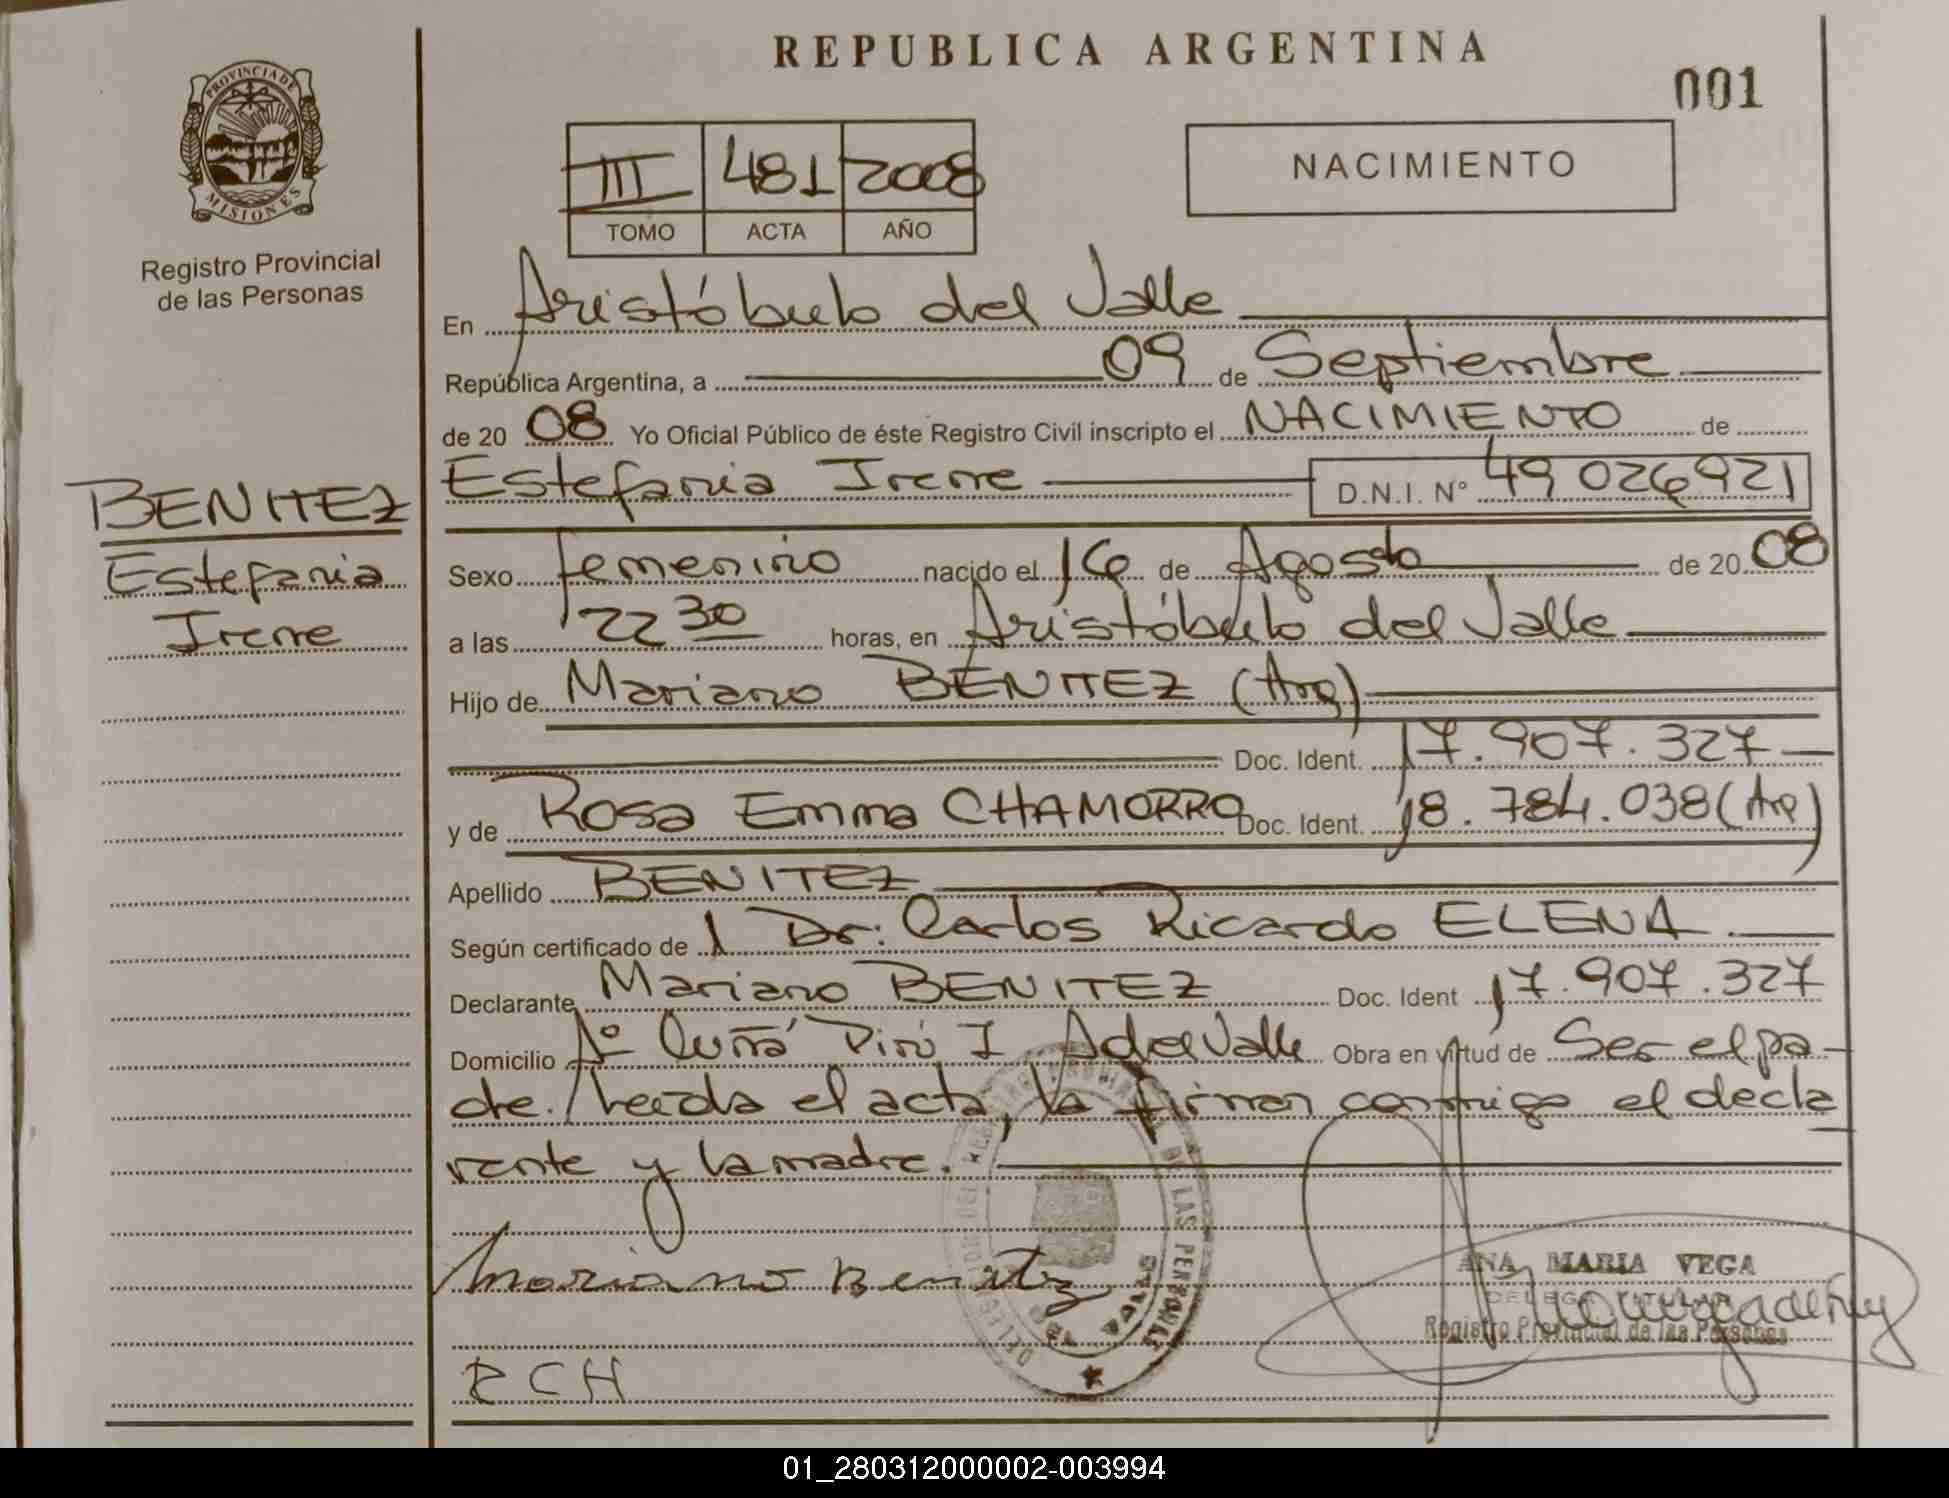 REPUBLICA ARGENTINA
001
PROVINCIA DE
MISIONES
Registro Provincial
de las Personas
III 481 2008
TOMO ACTA AÑO
NACIMIENTO
En Aristóbulo del Valle
República Argentina, a 09 de Septiembre
de 20 08 Yo Oficial Público de éste Registro Civil inscripto el NACIMIENTO de
Estefania Irene D.N.I. N° 49 026921
BENITEZ
Estefania
Irene
Sexo femenino nacido el 16 de Agosto de 20 08
a las 22 30 horas, en Aristóbulo del Valle
Hijo de Mariano BENITEZ (Arg)
Doc. Ident. 17.907.327
y de Rosa Emma CHAMORRO Doc. Ident. 18.784.038 (Arg)
Apellido BENITEZ
Según certificado de Dr. Carlos Ricardo ELENA
Declarante Mariano BENITEZ Doc. Ident 17.907.327
Domicilio Aº Cuñá Pirú I A del Valle Obra en virtud de Ser el pa-
dre. Leída el acta, la firman conmigo el decla
rante y la madre.
Mariano Benitez
DE LAS PERSONAS
DEL VALLE
ANA MARIA VEGA
DELEGADA TITULAR
Registro Provincial de las Personas
RCH
01_280312000002-003994